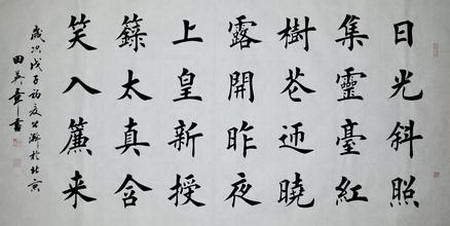 日光斜照
集靈臺紅
樹花迎曉
露開昨夜
上皇新授
籙太真含
笑入簾来
歲次戊子初夏於北京
田英章書